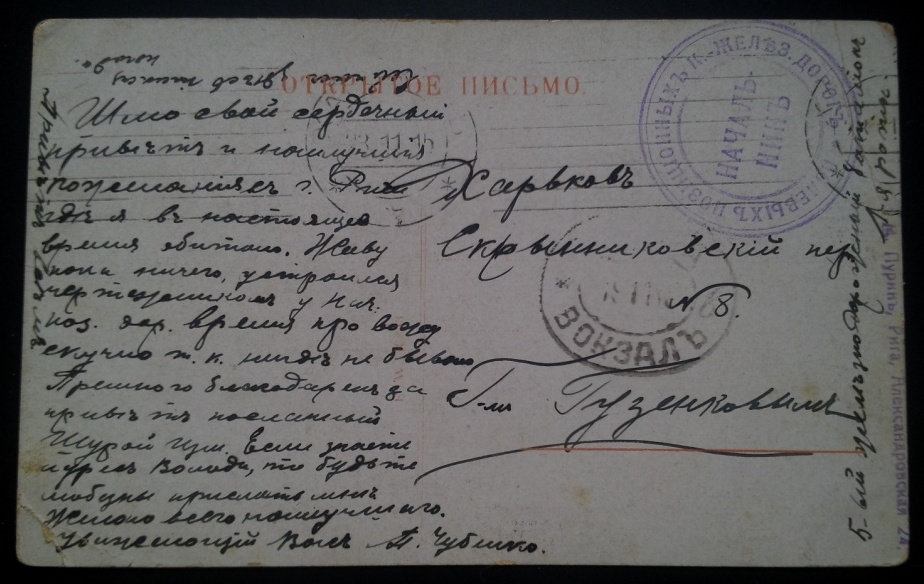 ОТКРЫТОЕ ПИСЬМО.
Шлю свой сердечный
привѣтъ и наилучшія
пожеланія съ г. Риги
гдѣ я въ настоящее
время обитаю. Живу
пока ничего, устроился
чертежникомъ у Нач.
поз. дор. время провожу
скучно т. к. нигдѣ не бываю
Премного благодаренъ за
привѣтъ посланный
Шурой Изм. Если знаете
адресъ Володи, то будьте
любезны прислать мнѣ
Желаю всего наилучшаго.
Уважающій Васъ П. Чубенко.
Харьковъ
Скрынниковскій пер
№ 8.
Г-мъ Гузенковымъ
5-ый желѣзнодорожный баталіонъ
рота.
НАЧАЛЬ-
НИКЪ
ПОЗИЦІОННЫХЪ
ЖЕЛѢЗ. ДОРОГЪ
ВОКЗАЛЪ
Пуринъ, Рига, Александровская 24.